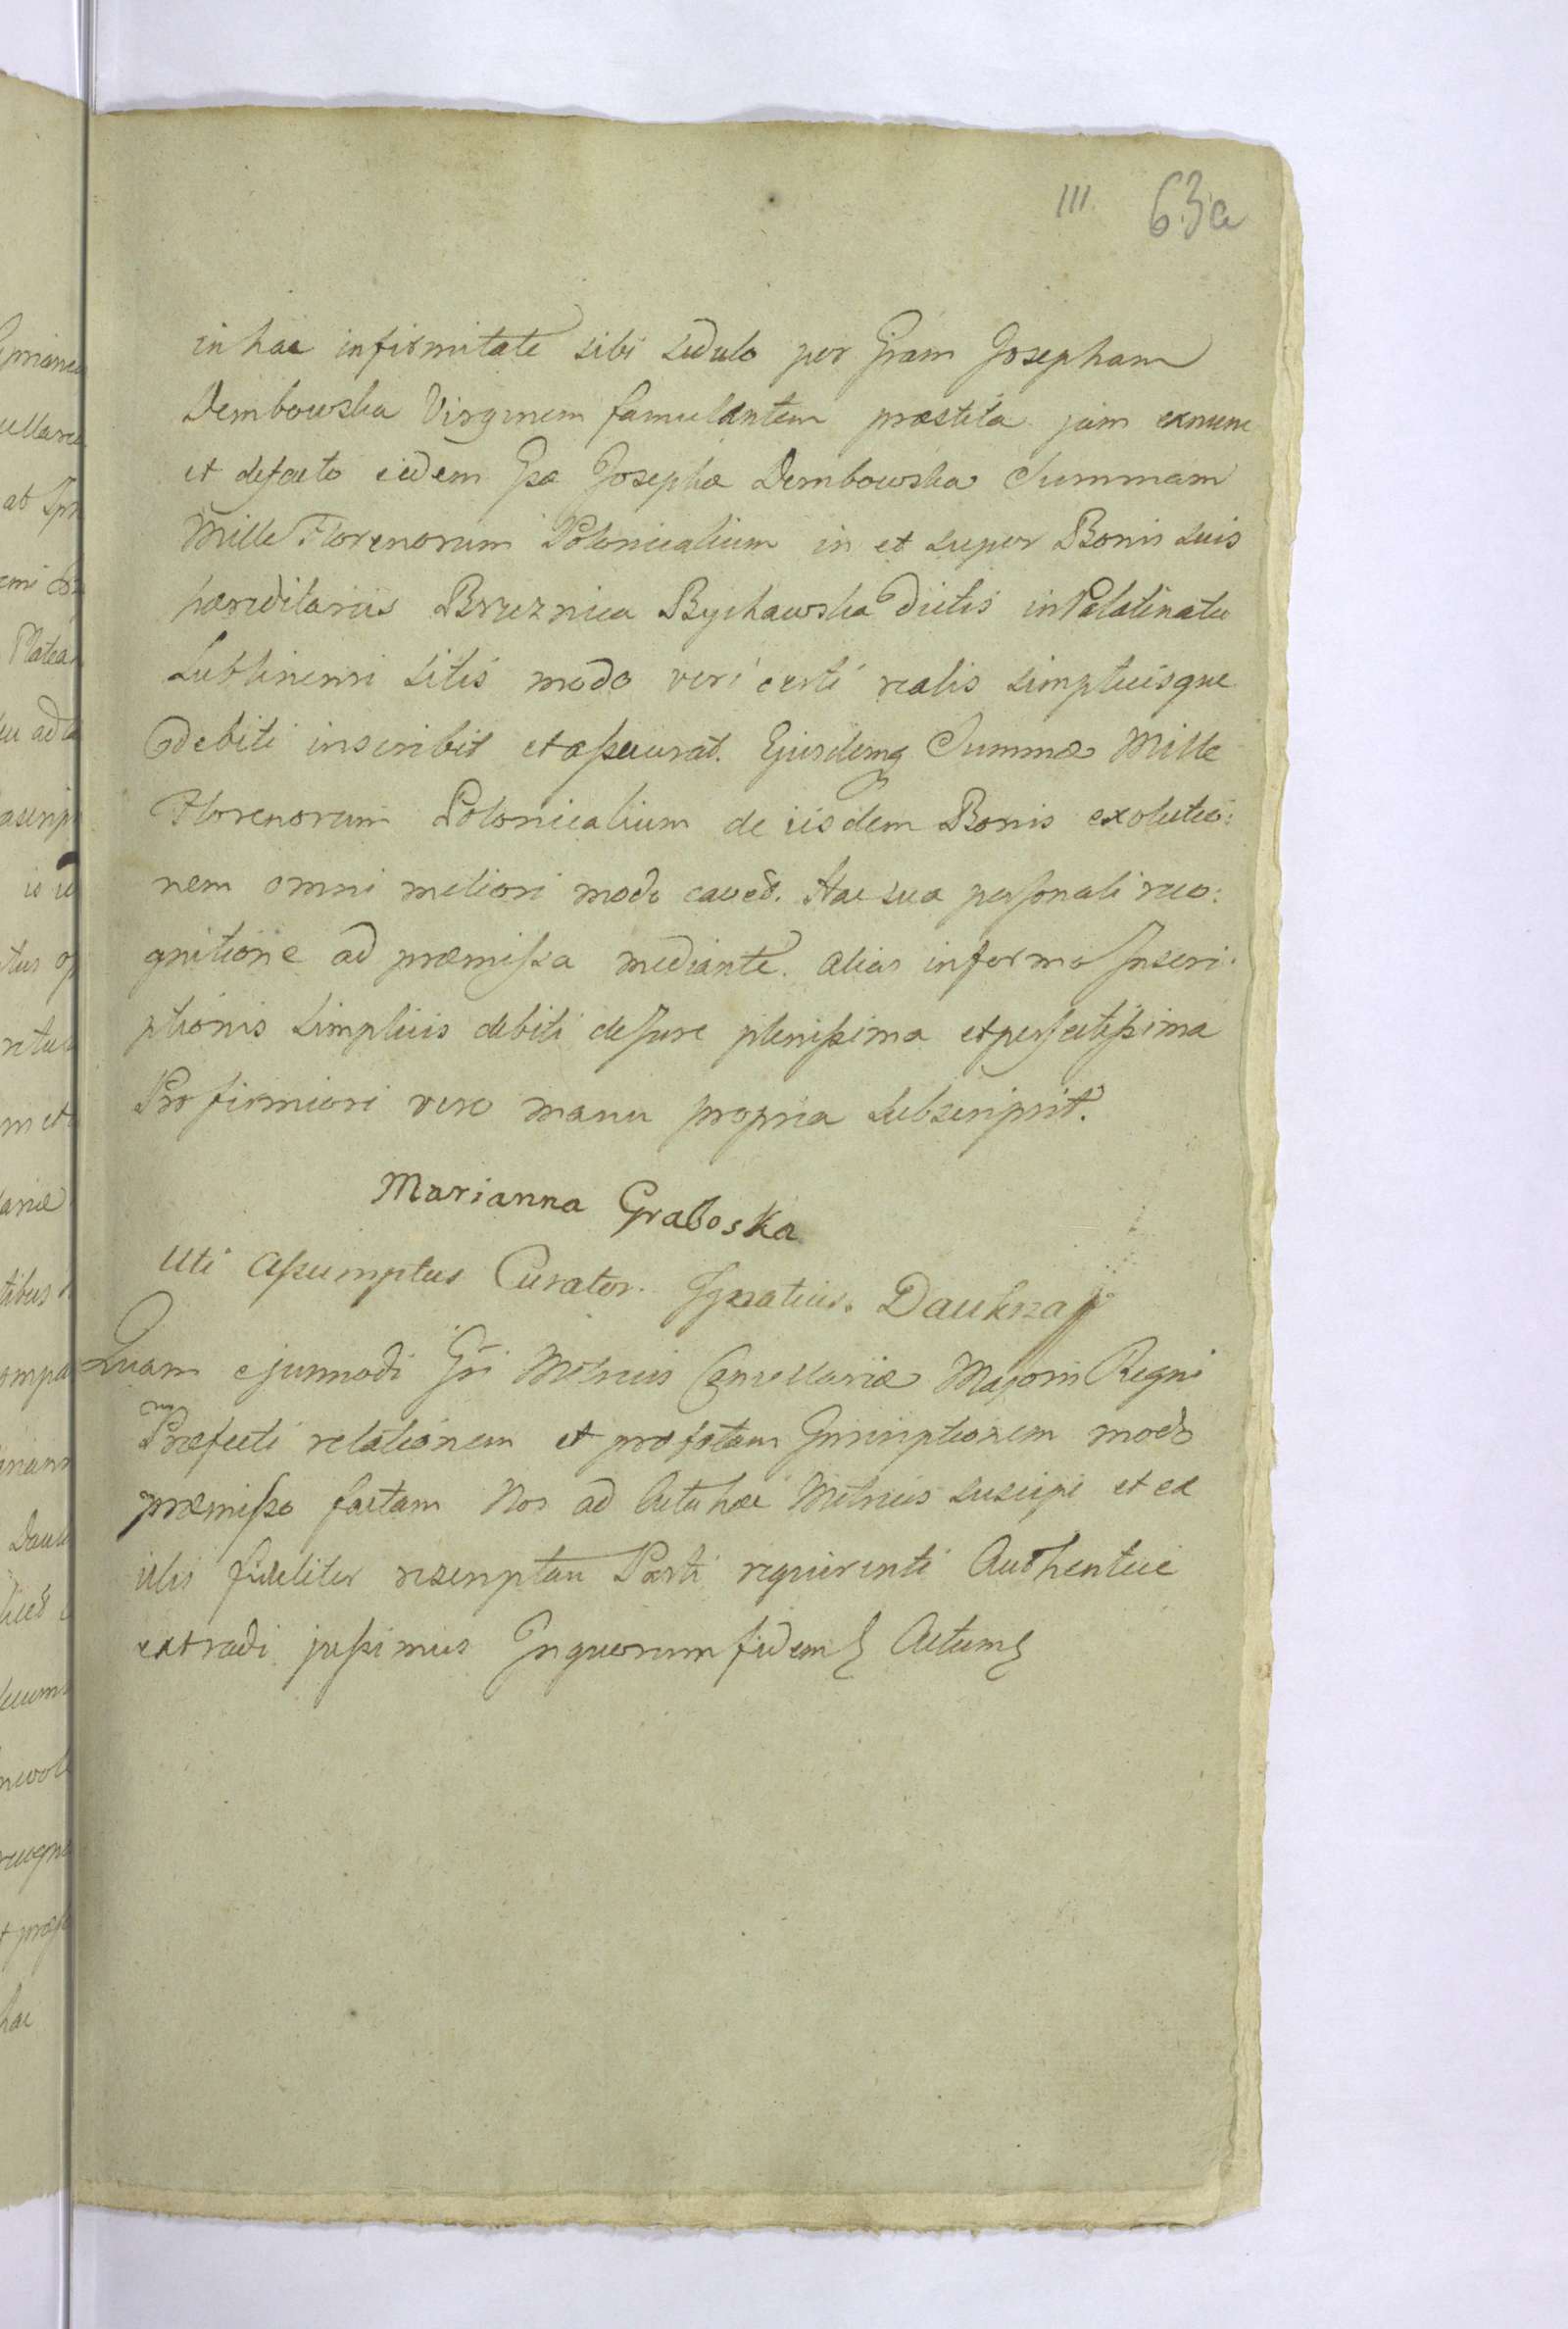 III. 63a
in hac infirmitate sibi sedulo per Gram Josepham
Dembowska Virginem famulantem præstita jam exnunc
et defacto eidem Gsæ Josephæ Dembowska Summam
Mille Florenorum Polonicalium in et super Bonis suis
hæreditariis Brzeznica Bychawska dictis in Palatinatu
Lublinensi sitis modo veri certi realis simplicisque
debiti inscribit et assecurat. Ejusdemq Summæ Mille
Florenorum Polonicalium de iisdem Bonis exolutio:
nem omni meliori modo caved. Hac sua personali reco:
gnitione ad præmissa mediante. alias in forma Inscri:
ptionis simplicis debiti de Jure plenissima et perfectissima
Pro firmiori vero manu propria subscripsit.
Marianna Graboska
Uti Assumptus Curator. Ignatius. Dauksza
Quam ejusmodi Gsi Metrices Cancellariæ Majoris Regni
Præfecti relationem et præfatam Inscriptionem modo
præmisso factam Nos ad Acta hæc Metrices suscipi et ex
iis fideliter rescriptam Parti requirenti Authentice
extradi jussimus In quorum fidem Actum